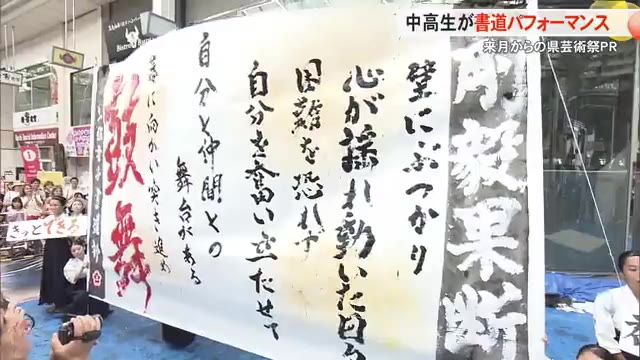 中高生が書道パフォーマンス
来月からの県芸術祭PR
剛毅果断
壁にぶつかり
心が揺れ動いた日も
困難を恐れず
自分を奮い立たせて
自分と仲間との
舞台がある
に向かい突き進め
鼓舞
きっとできる